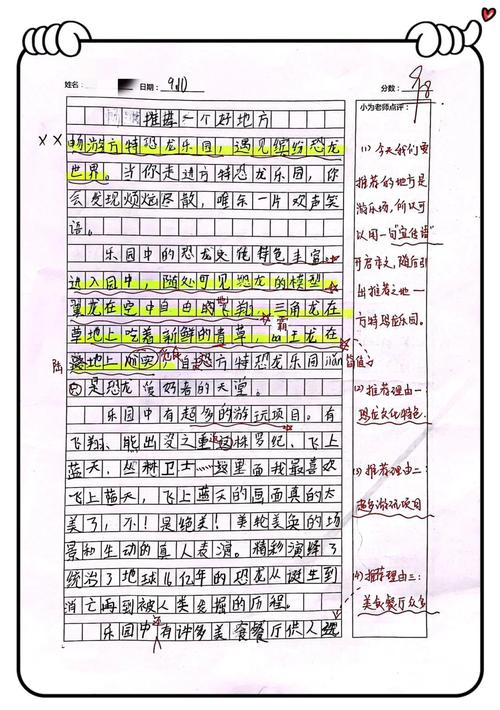 姓名: 日期: 9.10 分数: 98
小为老师点评:
推荐一个好地方
畅游方特恐龙乐园，遇见缤纷恐龙
世界。当你走进方特恐龙乐园，你
会发现烦恼尽散，唯乐一片欢声笑
语。
乐园中的恐龙文化特色丰富。
进入园中，随处可见恐龙的模型
翼龙在空中自由的飞翔，三角龙在
草地上吃着新鲜的青草，王龙在
霸
陆地上，自方特恐龙乐园jian
陆
简直
是恐龙爱好者的天堂。
乐园中有超多的游玩项目。有
飞翔、熊出没之重返侏罗纪、飞上
蓝天、丛林卫士……这里面我最喜欢
飞上蓝天，飞上蓝天的画面真的太
美了，不！是绝美！美轮美奂的场
景和生动的真人表演。精彩演绎了
统治了地球1.6亿年的恐龙从诞生到
消亡再到被人类发掘的历程。
乐园中有许多美食餐厅供人选
(1) 今天我们要
推荐的地方是
游乐场，所以可
以用一句"宣传语"
开启作文，随后引
出推荐之地—
方特恐龙乐园。
(2) 推荐理由一:
恐龙文化特色
(3) 推荐理由二:
超多游玩项目
(4) 推荐理由三:
美食餐厅众多